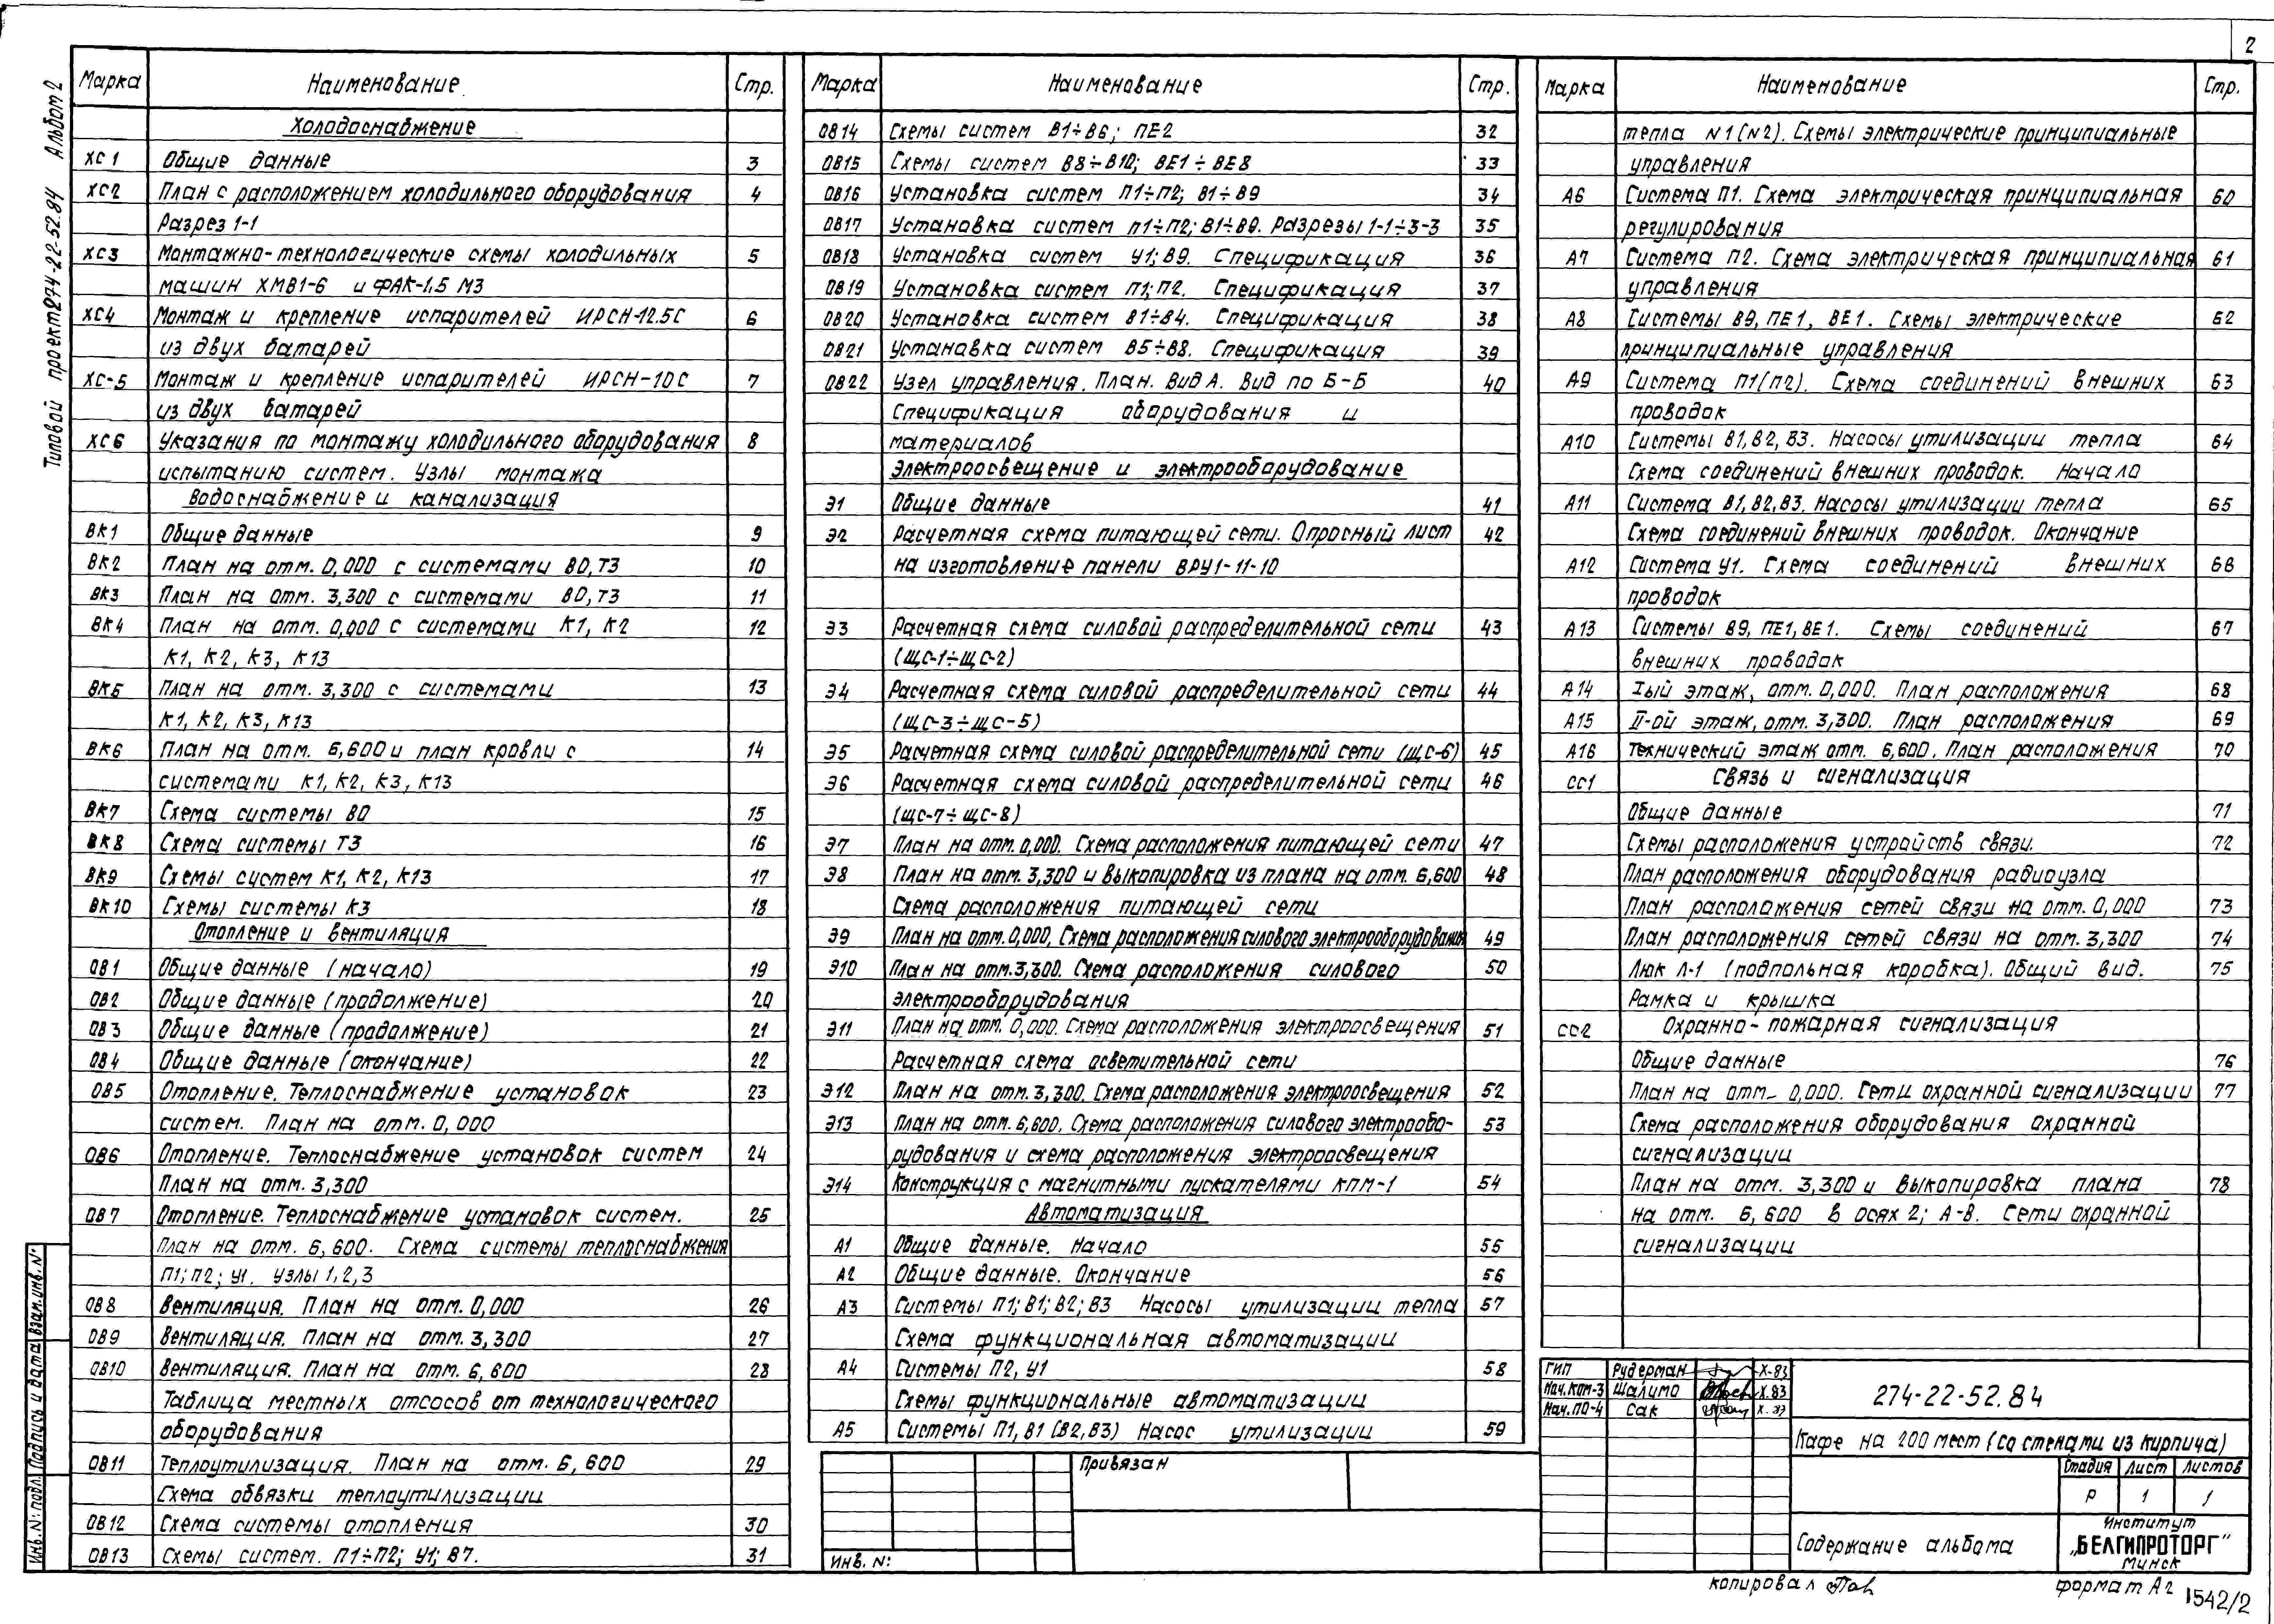 2
Типовой проект 274-22-52.84 Альбом 2
Марка Наименование Стр.
Холодоснабжение
ХС1 Общие данные 3
ХС2 План с расположением холодильного оборудования 4
Разрез 1-1
ХС3 Монтажно-технологические схемы холодильных 5
машин ХМВ1-6 и ФАК-1,5 М3
ХС4 Монтаж и крепление испарителей ИРСН-12.5С 6
из двух батарей
ХС-5 Монтаж и крепление испарителей ИРСН-10С 7
из двух батарей
ХС6 Указания по монтажу холодильного оборудования 8
испытанию систем. Узлы монтажа
Водоснабжение и канализация
ВК1 Общие данные 9
ВК2 План на отм. 0,000 с системами В0, Т3 10
ВК3 План на отм. 3,300 с системами В0, Т3 11
ВК4 План на отм. 0,000 с системами К1, К2 12
К1, К2, К3, К13
ВК5 План на отм. 3,300 с системами 13
К1, К2, К3, К13
ВК6 План на отм. 6,600 и план кровли с 14
системами К1, К2, К3, К13
ВК7 Схема системы В0 15
ВК8 Схема системы Т3 16
ВК9 Схемы систем К1, К2, К13 17
ВК10 Схемы системы К3 18
Отопление и вентиляция
ОВ1 Общие данные (начало) 19
ОВ2 Общие данные (продолжение) 20
ОВ3 Общие данные (продолжение) 21
ОВ4 Общие данные (окончание) 22
ОВ5 Отопление. Теплоснабжение установок 23
систем. План на отм. 0,000
ОВ6 Отопление. Теплоснабжение установок систем 24
План на отм. 3,300
ОВ7 Отопление. Теплоснабжение установок систем. 25
План на отм. 6,600. Схема системы теплоснабжения
П1; П2; У1. Узлы 1, 2, 3
ОВ8 Вентиляция. План на отм. 0,000 26
ОВ9 Вентиляция. План на отм. 3,300 27
ОВ10 Вентиляция. План на отм. 6,600 28
Таблица местных отсосов от технологического
оборудования
ОВ11 Теплоутилизация. План на отм. 6,600 29
Схема обвязки теплоутилизации
ОВ12 Схема системы отопления 30
ОВ13 Схемы систем. П1÷П2; У1; В7. 31
Марка Наименование Стр.
ОВ14 Схемы систем В1÷В6; ПЕ2 32
ОВ15 Схемы систем В8÷В10; ВЕ1÷ВЕ8 33
ОВ16 Установка систем П1÷П2; В1÷В9 34
ОВ17 Установка систем П1÷П2; В1÷В9. Разрезы 1-1÷3-3 35
ОВ18 Установка систем У1; В9. Спецификация 36
ОВ19 Установка систем П1; П2. Спецификация 37
ОВ20 Установка систем В1÷В4. Спецификация 38
ОВ21 Установка систем В5÷В8. Спецификация 39
ОВ22 Узел управления. План. Вид А. Вид по Б-Б 40
Спецификация оборудования и
материалов
Электроосвещение и электрооборудование
Э1 Общие данные 41
Э2 Расчетная схема питающей сети. Опросный лист 42
на изготовление панели ВРУ1-11-10
Э3 Расчетная схема силовой распределительной сети 43
(ЩС-1÷ЩС-2)
Э4 Расчетная схема силовой распределительной сети 44
(ЩС-3÷ЩС-5)
Э5 Расчетная схема силовой распределительной сети (ЩС-6) 45
Э6 Расчетная схема силовой распределительной сети 46
(ЩС-7÷ЩС-8)
Э7 План на отм. 0,000. Схема расположения питающей сети 47
Э8 План на отм. 3,300 и выкопировка из плана на отм. 6,600 48
Схема расположения питающей сети
Э9 План на отм. 0,000. Схема расположения силового электрооборудования 49
Э10 План на отм. 3,300. Схема расположения силового 50
электрооборудования
Э11 План на отм. 0,000. Схема расположения электроосвещения 51
Расчетная схема осветительной сети
Э12 План на отм. 3,300. Схема расположения электроосвещения 52
Э13 План на отм. 6,600. Схема расположения силового электрообо- 53
рудования и схема расположения электроосвещения
Э14 Конструкция с магнитными пускателями КПМ-1 54
Автоматизация
А1 Общие данные. Начало 55
А2 Общие данные. Окончание 56
А3 Системы П1; В1; В2; В3 Насосы утилизации тепла 57
Схема функциональная автоматизации
А4 Системы П2, У1 58
Схемы функциональные автоматизации
А5 Системы П1, В1 (В2, В3) Насос утилизации 59
Марка Наименование Стр.
тепла N1 (N2). Схемы электрические принципиальные
управления
А6 Система П1. Схема электрическая принципиальная 60
регулирования
А7 Система П2. Схема электрическая принципиальная 61
управления
А8 Системы В9, ПЕ1, ВЕ1. Схемы электрические 62
принципиальные управления
А9 Система П1(П2). Схема соединений внешних 63
проводок
А10 Системы В1, В2, В3. Насосы утилизации тепла 64
Схема соединений внешних проводок. Начало
А11 Система В1, В2, В3. Насосы утилизации тепла 65
Схема соединений внешних проводок. Окончание
А12 Система У1. Схема соединений внешних 66
проводок
А13 Системы В9, ПЕ1, ВЕ1. Схемы соединений 67
внешних проводок
А14 Iый этаж, отм. 0,000. План расположения 68
А15 II-ой этаж, отм. 3,300. План расположения 69
А16 Технический этаж отм. 6,600. План расположения 70
СС1 Связь и сигнализация
Общие данные 71
Схемы расположения устройств связи. 72
План расположения оборудования радиоузла
План расположения сетей связи на отм. 0,000 73
План расположения сетей связи на отм. 3,300 74
Люк Л-1 (подпольная коробка). Общий вид. 75
Рамка и крышка
СС2 Охранно-пожарная сигнализация
Общие данные 76
План на отм. 0,000. Сети охранной сигнализации 77
Схема расположения оборудования охранной
сигнализации
План на отм. 3,300 и выкопировка плана 78
на отм. 6,600 в осях 2; А-В. Сети охранной
сигнализации
Инв.N: подл. Подпись и дата Взам.инв.N:
Привязан
Инв. N:
ГИП Рудерман X-83
Нач.КПМ-3 Шалимо X.83
Нач.ПО-4 Сак X.83
274-22-52.84
Кафе на 200 мест (со стенами из кирпича)
Стадия Лист Листов
Р 1 1
Содержание альбома
Институт
„БЕЛГИПРОТОРГ"
Минск
копировал
формат А2
1542/2